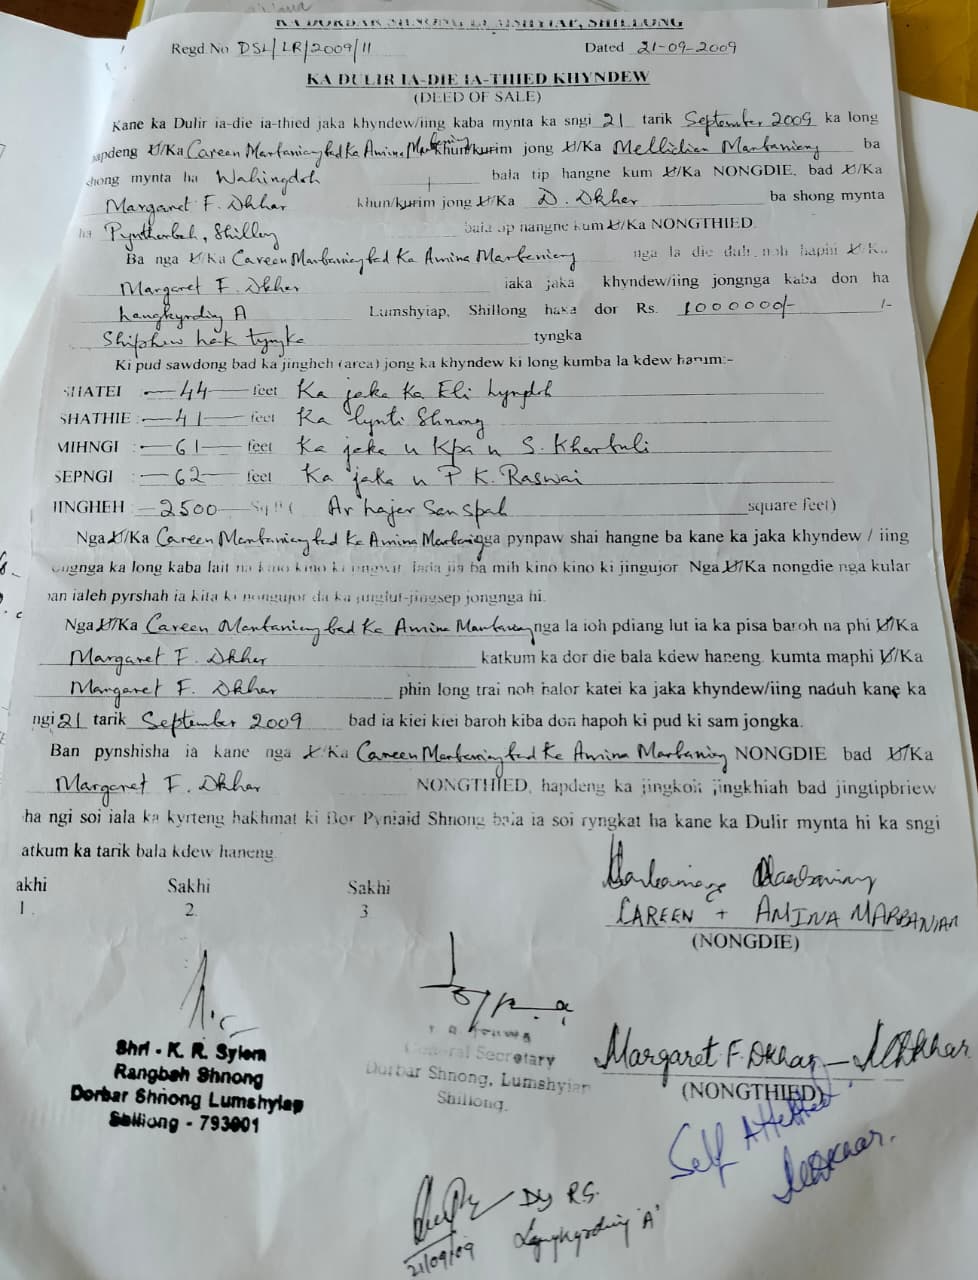 KA DORBAR SHNONG LUMSHYIAP, SHILLONG
Regd. No DSL/LR/2009/11 Dated 21-09-2009
KA DULIR IA-DIE IA-THIED KHYNDEW
(DEED OF SALE)
Kane ka Dulir ia-die ia-thied jaka khyndew/iing kaba mynta ka sngi 21 tarik September 2009 ka long
hapdeng U/Ka Careen Marbaniang bad Ka Amina Marbaniang khun/kurim jong U/Ka Mellidian Marbaniang ba
shong mynta ha Wahingdoh bala tip hangne kum U/Ka NONGDIE, bad U/Ka
Margaret F. Dkhar khun/kurim jong U/Ka D. Dkhar ba shong mynta
ha Pynthorbah, Shillong bala tip hangne kum U/Ka NONGTHIED.
Ba nga U/Ka Careen Marbaniang bad Ka Amina Marbaniang nga la die duh noh haphi U/Ka
Margaret F. Dkhar iaka jaka khyndew/iing jongnga kaba don ha
Langkyrding A Lumshyiap, Shillong haka dor Rs. 1000000/- /-
Shiphew lak tyngka tyngka
Ki pud sawdong bad ka jingheh (area) jong ka khyndew ki long kumba la kdew harum:-
SHATEI :- 44 feet Ka jaka Ka Eli Lyngdoh
SHATHIE :- 41 feet Ka lynti Shnong
MIHNGI :- 61 feet Ka jaka u Kpa u S. Kharbuli
SEPNGI :- 62 feet Ka jaka u P K. Raswai
JINGHEH - 2500 Sq Ft ( Ar hajar San spah square feet)
Nga U/Ka Careen Marbaniang bad Ka Amina Marbaniang nga pynpaw shai hangne ba kane ka jaka khyndew / iing
jongnga ka long kaba lait na kino kino ki jingwit. Lada jia ba mih kino kino ki jingujor Nga U/Ka nongdie nga kular
ban ialeh pyrshah ia kita ki nongujor da ka jinglut-jingsep jongnga hi.
Nga U/Ka Careen Marbaniang bad Ka Amina Marbaniang nga la ioh pdiang lut ia ka pisa baroh na phi U/Ka
Margaret F. Dkhar katkum ka dor die bala kdew haneng. kumta maphi U/Ka
Margaret F. Dkhar phin long trai noh halor katei ka jaka khyndew/iing naduh kane ka
ngi 21 tarik September 2009 bad ia kiei kiei baroh kiba don hapoh ki pud ki sam jongka.
Ban pynshisha ia kane nga U/Ka Careen Marbaniang bad Ka Amina Marbaniang NONGDIE bad U/Ka
Margaret F. Dkhar NONGTHIED, hapdeng ka jingkoit jingkhiah bad jingtipbriew
ha ngi soi iala ka kyrteng hakhmat ki Bor Pyniaid Shnong bala ia soi ryngkat ha kane ka Dulir mynta hi ka sngi
atkum ka tarik bala kdew haneng.
akhi Sakhi Sakhi
1. 2. 3
Marbaniang
CAREEN + AMINA MARBANIANG
(NONGDIE)
Shri - K. R. Syiem
Rangbah Shnong
Dorbar Shnong Lumshyiap
Shillong - 793001
General Secretary
Dorbar Shnong, Lumshyiap
Shillong.
Margaret F. Dkhar - MDkhar
(NONGTHIED)
Self Attested
MDkhar.
Dy R.S.
Langkyrding 'A'
21/09/09